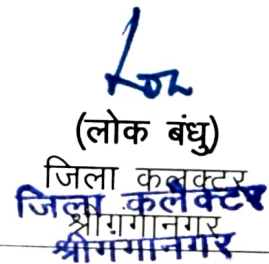 (लोक बंधु)
जिला कलक्टर
जिला कलैक्टर
श्रीगंगानगर
श्रीगंगानगर